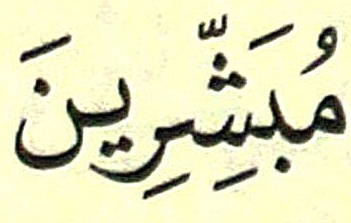 مُبَشِّرِينَ